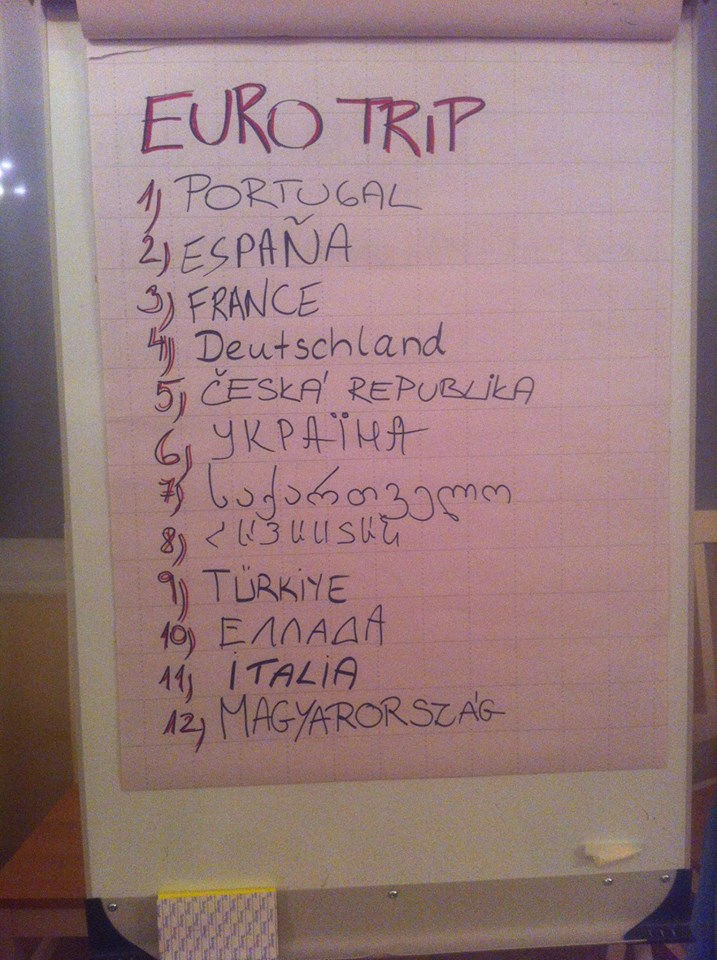 EURO TRIP
1) PORTUGAL
2) ESPAÑA
3) FRANCE
4) Deutschland
5) ČESKÁ REPUBLIKA
6) УКРАЇНА
7) საქართველო
8) ՀԱՅԱՍՏԱՆ
9) TÜRKİYE
10) ΕΛΛΑΔΑ
11) İTALİA
12) MAGYARORSZÁG